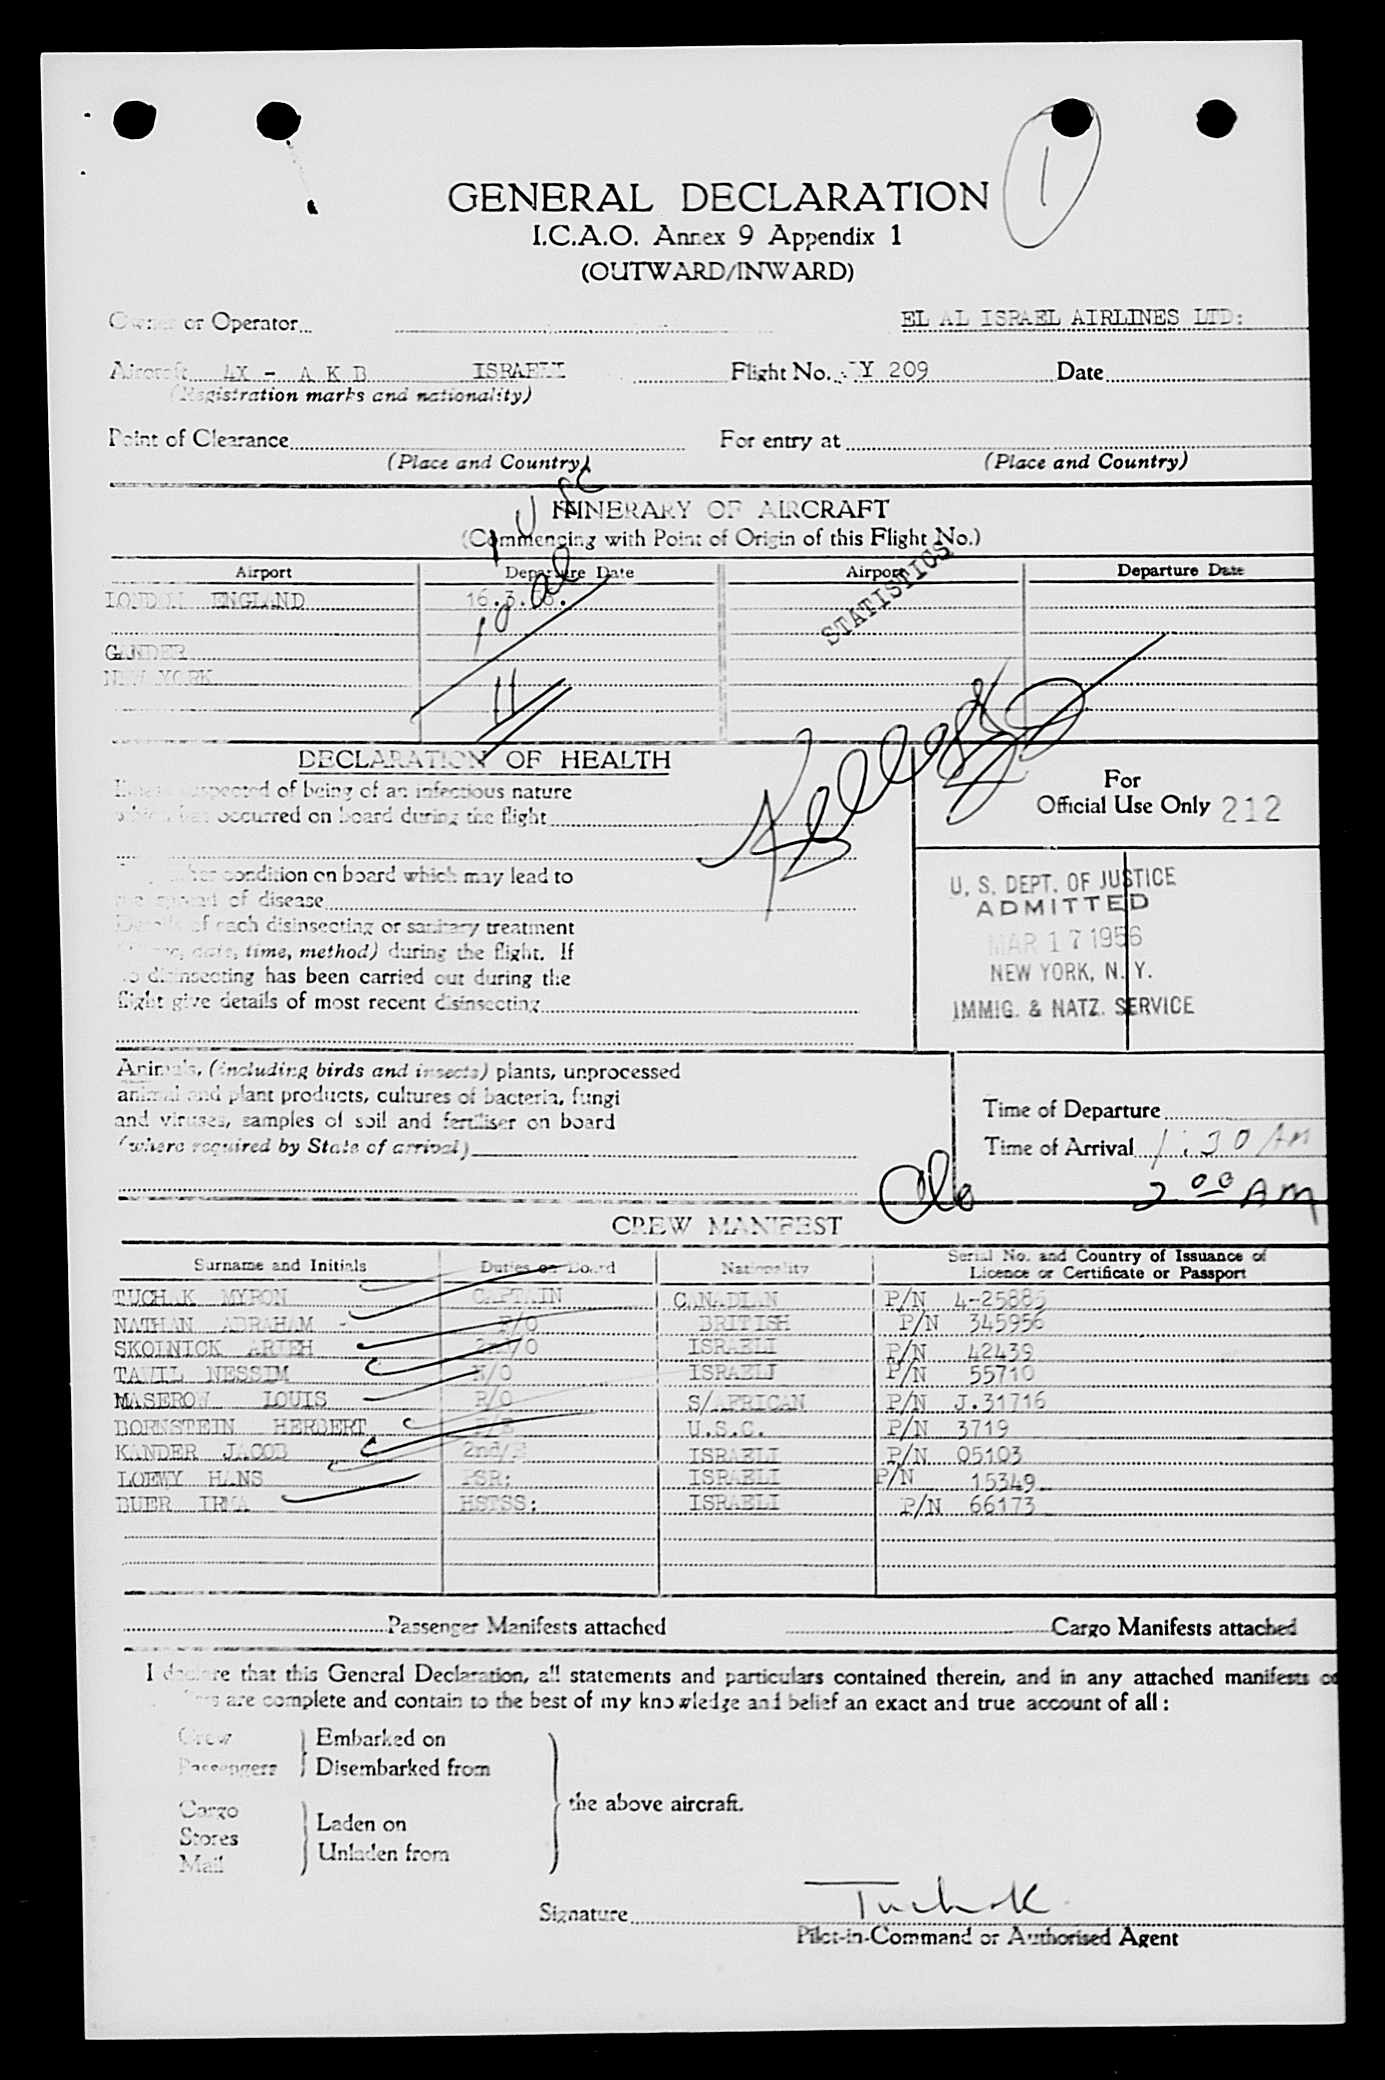 1
GENERAL DECLARATION
I.C.A.O. Annex 9 Appendix 1
(OUTWARD/INWARD)
Owner or Operator EL AL ISRAEL AIRLINES LTD:
Aircraft 4X - A K B ISRAELI Flight No. LY 209 Date
(Registration marks and nationality)
Point of Clearance For entry at
(Place and Country) (Place and Country)
ITINERARY OF AIRCRAFT
(Commencing with Point of Origin of this Flight No.)
Airport Departure Date Airport Departure Date
LONDON ENGLAND 16.3.56.
STATISTICS
GANDER
NEW YORK
11
DECLARATION OF HEALTH
Illness suspected of being of an infectious nature
which has occurred on board during the flight
For
Official Use Only 212
condition on board which may lead to
the spread of disease
Details of each disinsecting or sanitary treatment
(place, date, time, method) during the flight. If
no disinsecting has been carried out during the
flight give details of most recent disinsecting
U. S. DEPT. OF JUSTICE
ADMITTED
MAR 17 1956
NEW YORK, N. Y.
IMMIG. & NATZ. SERVICE
Animals, (including birds and insects) plants, unprocessed
animal and plant products, cultures of bacteria, fungi
and viruses, samples of soil and fertiliser on board
(where required by State of arrival)
Time of Departure
Time of Arrival 1:30 AM
2 00 AM
CREW MANIFEST
Surname and Initials Duties on Board Nationality Serial No. and Country of Issuance of
Licence or Certificate or Passport
TUCHAK MYRON CAPTAIN CANADIAN P/N 4-25885
NATHAN ABRAHAM F/O BRITISH P/N 345956
SKOLNICK ARIEH 2nd/O ISRAELI P/N 42439
TAWIL NESSIM N/O ISRAELI P/N 55710
MASEROW LOUIS R/O S/AFRICAN P/N J.31716
BORNSTEIN HERBERT F/E U.S.C. P/N 3719
KANDER JACOB 2nd/E ISRAELI P/N 05103
LOEWY HANS PSR: ISRAELI P/N 15349
BUER IRMA HSTSS: ISRAELI P/N 66173
Passenger Manifests attached Cargo Manifests attached
I declare that this General Declaration, all statements and particulars contained therein, and in any attached manifests or
are complete and contain to the best of my knowledge and belief an exact and true account of all:
Crew Embarked on
Passengers Disembarked from
the above aircraft.
Cargo
Laden on
Stores
Unladen from
Mail
Signature Tuchak
Pilot-in-Command or Authorised Agent